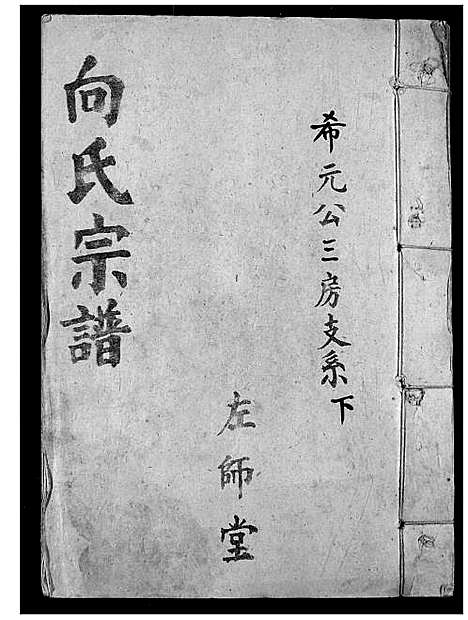 希元公三房支系下
左師堂
向氏宗譜